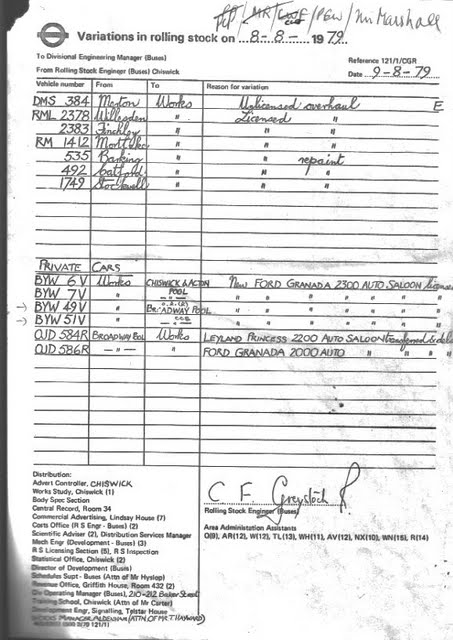 MR / CWE / PGW / Mr Marshall
Variations in rolling stock on 8-8- 1979.
To Divisional Engineering Manager (Buses)
From Rolling Stock Engineer (Buses) Chiswick
Reference 121/1/CGR
Date 9-8-79
Vehicle number From To Reason for variation
DMS 384 Merton Works Unlicensed overhaul E
RML 2378 Willesden " Licensed "
2383 Finchley " " "
RM 1412 Mortlake " " "
535 Barking " " repaint
492 Catford " " "
1749 Stockwell " " "
PRIVATE CARS
BYW 6V Works CHISWICK & ACTON POOL New FORD GRANADA 2300 AUTO SALOON licensed
BYW 7V " —"— " " " " " "
→ BYW 49V " BROADWAY POOL " " " " " "
→ BYW 51V " —"— " " " " " "
OJD 584R BROADWAY POOL Works LEYLAND PRINCESS 2200 AUTO SALOON transferred &
OJD 586R —"— " FORD GRANADA 2000 AUTO " " "
Distribution:
Advert Controller, CHISWICK
Works Study, Chiswick (1)
Body Spec Section
Central Record, Room 34
Commercial Advertising, Lindsay House (7)
Costs Office (R S Engr - Buses) (2)
Scientific Adviser (2), Distribution Services Manager
Mech Engr (Development - Buses) (3)
R S Licensing Section (5), R S Inspection
Statistical Office, Chiswick (2)
Director of Development (Buses)
Schedules Supt - Buses (Attn of Mr Hyslop)
Revenue Office, Griffith House, Room 432 (2)
Div Operating Manager (Buses), 210-212 Baker Street
Training School, Chiswick (Attn of Mr Carter)
Development Engr, Signalling, Telstar House
WORKS MANAGER ALDENHAM (ATTN OF MR T HAYWARD)
C F Greystock
Rolling Stock Engineer (Buses)
Area Administration Assistants
O(9), AR(12), W(12), TL(13), WH(11), AV(12), NX(10), WN(15), R(14)